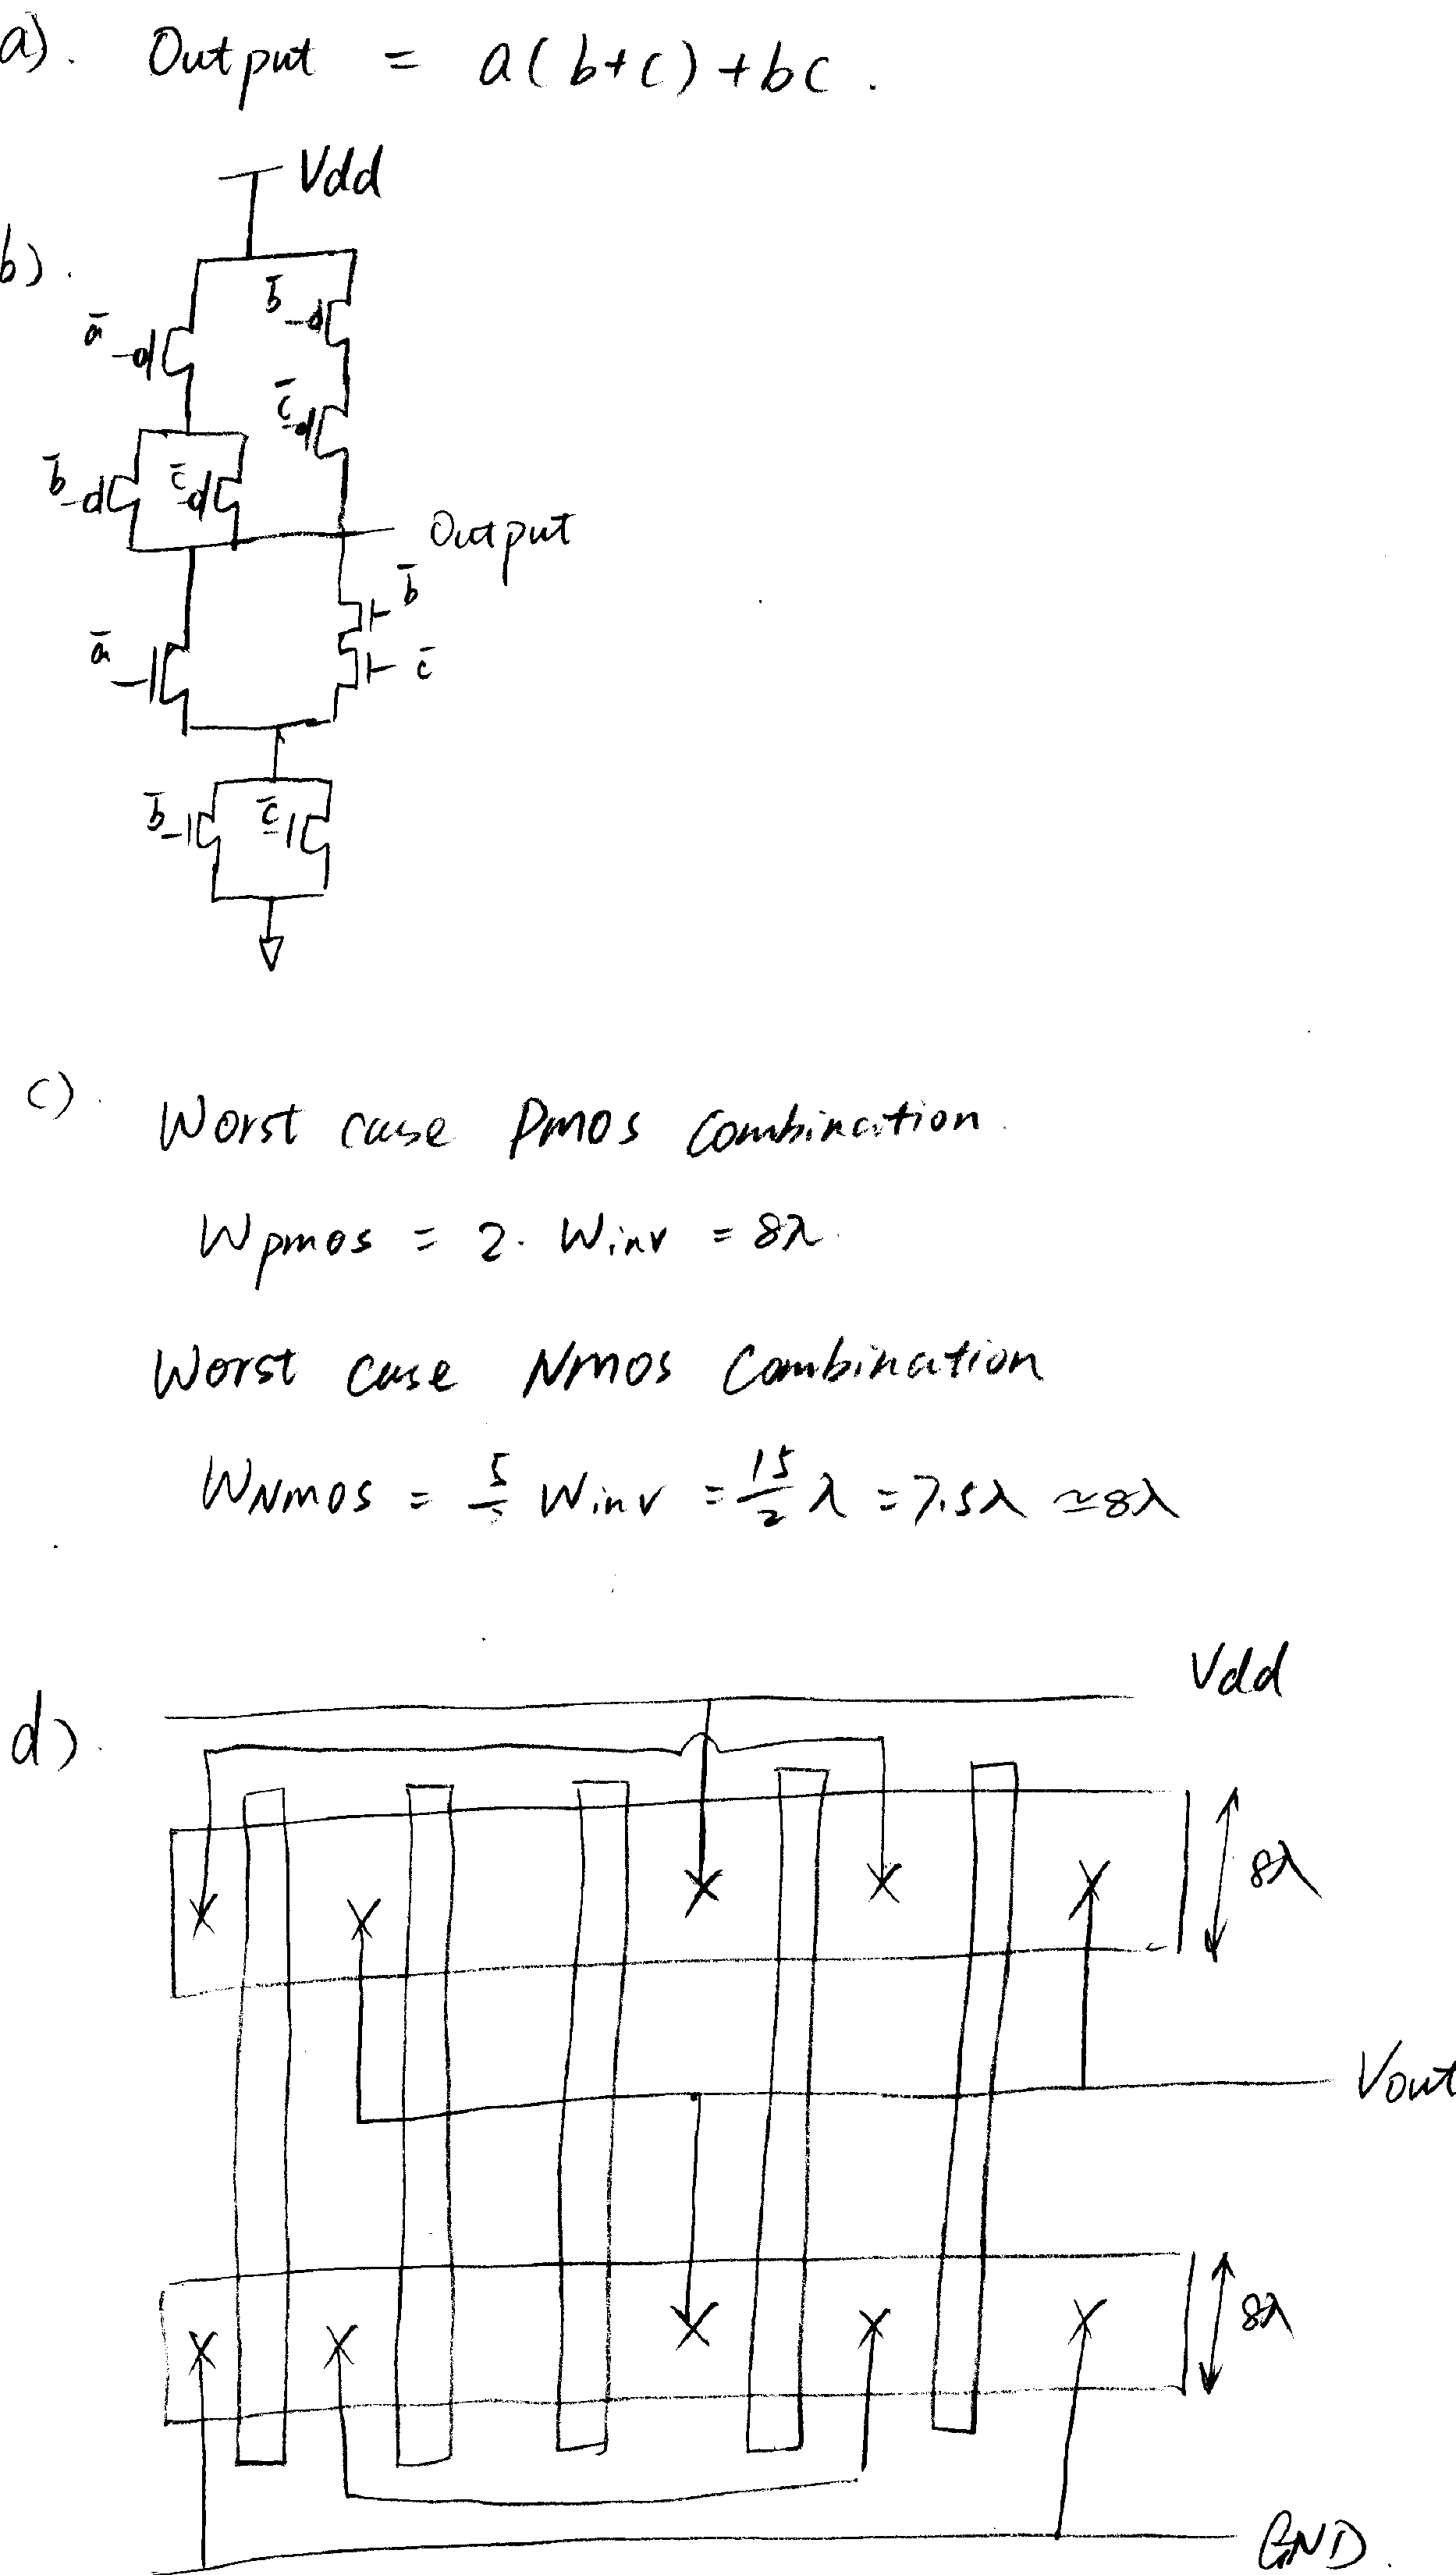 a). Output = a(b+c)+bc.
Vdd
b).
b̄
ā
c̄
b̄ c̄
Output
b̄
ā c̄
b̄ c̄
c).
Worst case Pmos Combination.
Wpmos = 2. Winv = 8λ.
Worst case Nmos Combination
WNmos = 5/ Winv = 15/2 λ = 7.5λ ≃8λ
Vdd
d).
8λ
Vout
8λ
GND.